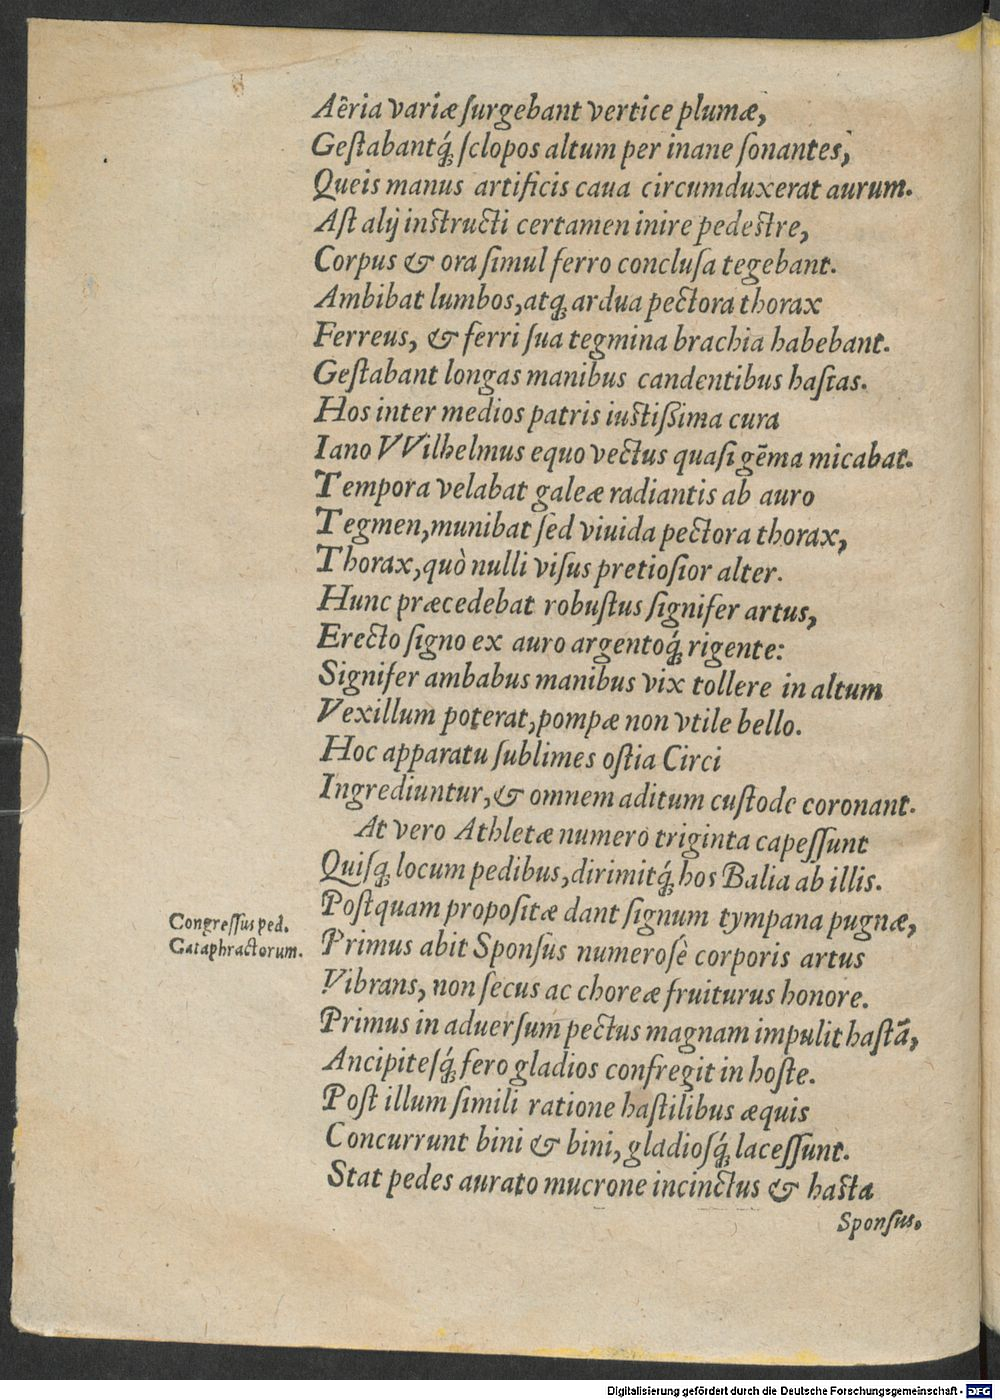 Aëria variæ ſurgebant vertice plumæ,
Geſtabantq́; ſclopos altum per inane ſonantes,
Queis manus artificis caua circumduxerat aurum.
Aſt alij inſtructi certamen inire pedeſtre,
Corpus & ora ſimul ferro concluſa tegebant.
Ambibat lumbos, atq; ardua pectora thorax
Ferreus, & ferri ſua tegmina brachia habebant.
Geſtabant longas manibus candentibus haſtas.
Hos inter medios patris iuſtißima cura
Iano VVilhelmus equo vectus quaſi gẽma micabat.
Tempora velabat galeæ radiantis ab auro
Tegmen, munibat ſed viuida pectora thorax,
Thorax, quò nulli viſus pretioſior alter.
Hunc præcedebat robuſtus ſignifer artus,
Erecto ſigno ex auro argentoq́; rigente:
Signifer ambabus manibus vix tollere in altum
Vexillum poterat, pompæ non vtile bello.
Hoc apparatu ſublimes oſtia Circi
Ingrediuntur, & omnem aditum cuſtode coronant.
At vero Athletæ numero triginta capeſſunt
Quiſq; locum pedibus, dirimitq́; hos Balia ab illis.
Poſtquam propoſitæ dant ſignum tympana pugnæ,
Congreſſus ped.
Cataphractorum.
Primus abit Sponſus numeroſè corporis artus
Vibrans, non ſecus ac choreæ fruiturus honore.
Primus in aduerſum pectus magnam impulit haſtã,
Ancipiteſq́; fero gladios confregit in hoſte.
Poſt illum ſimili ratione haſtilibus æquis
Concurrunt bini & bini, gladioſq́; laceſſunt.
Stat pedes aurato mucrone incinctus & haſta
Sponſus.
Digitalisierung gefördert durch die Deutsche Forschungsgemeinschaft - DFG